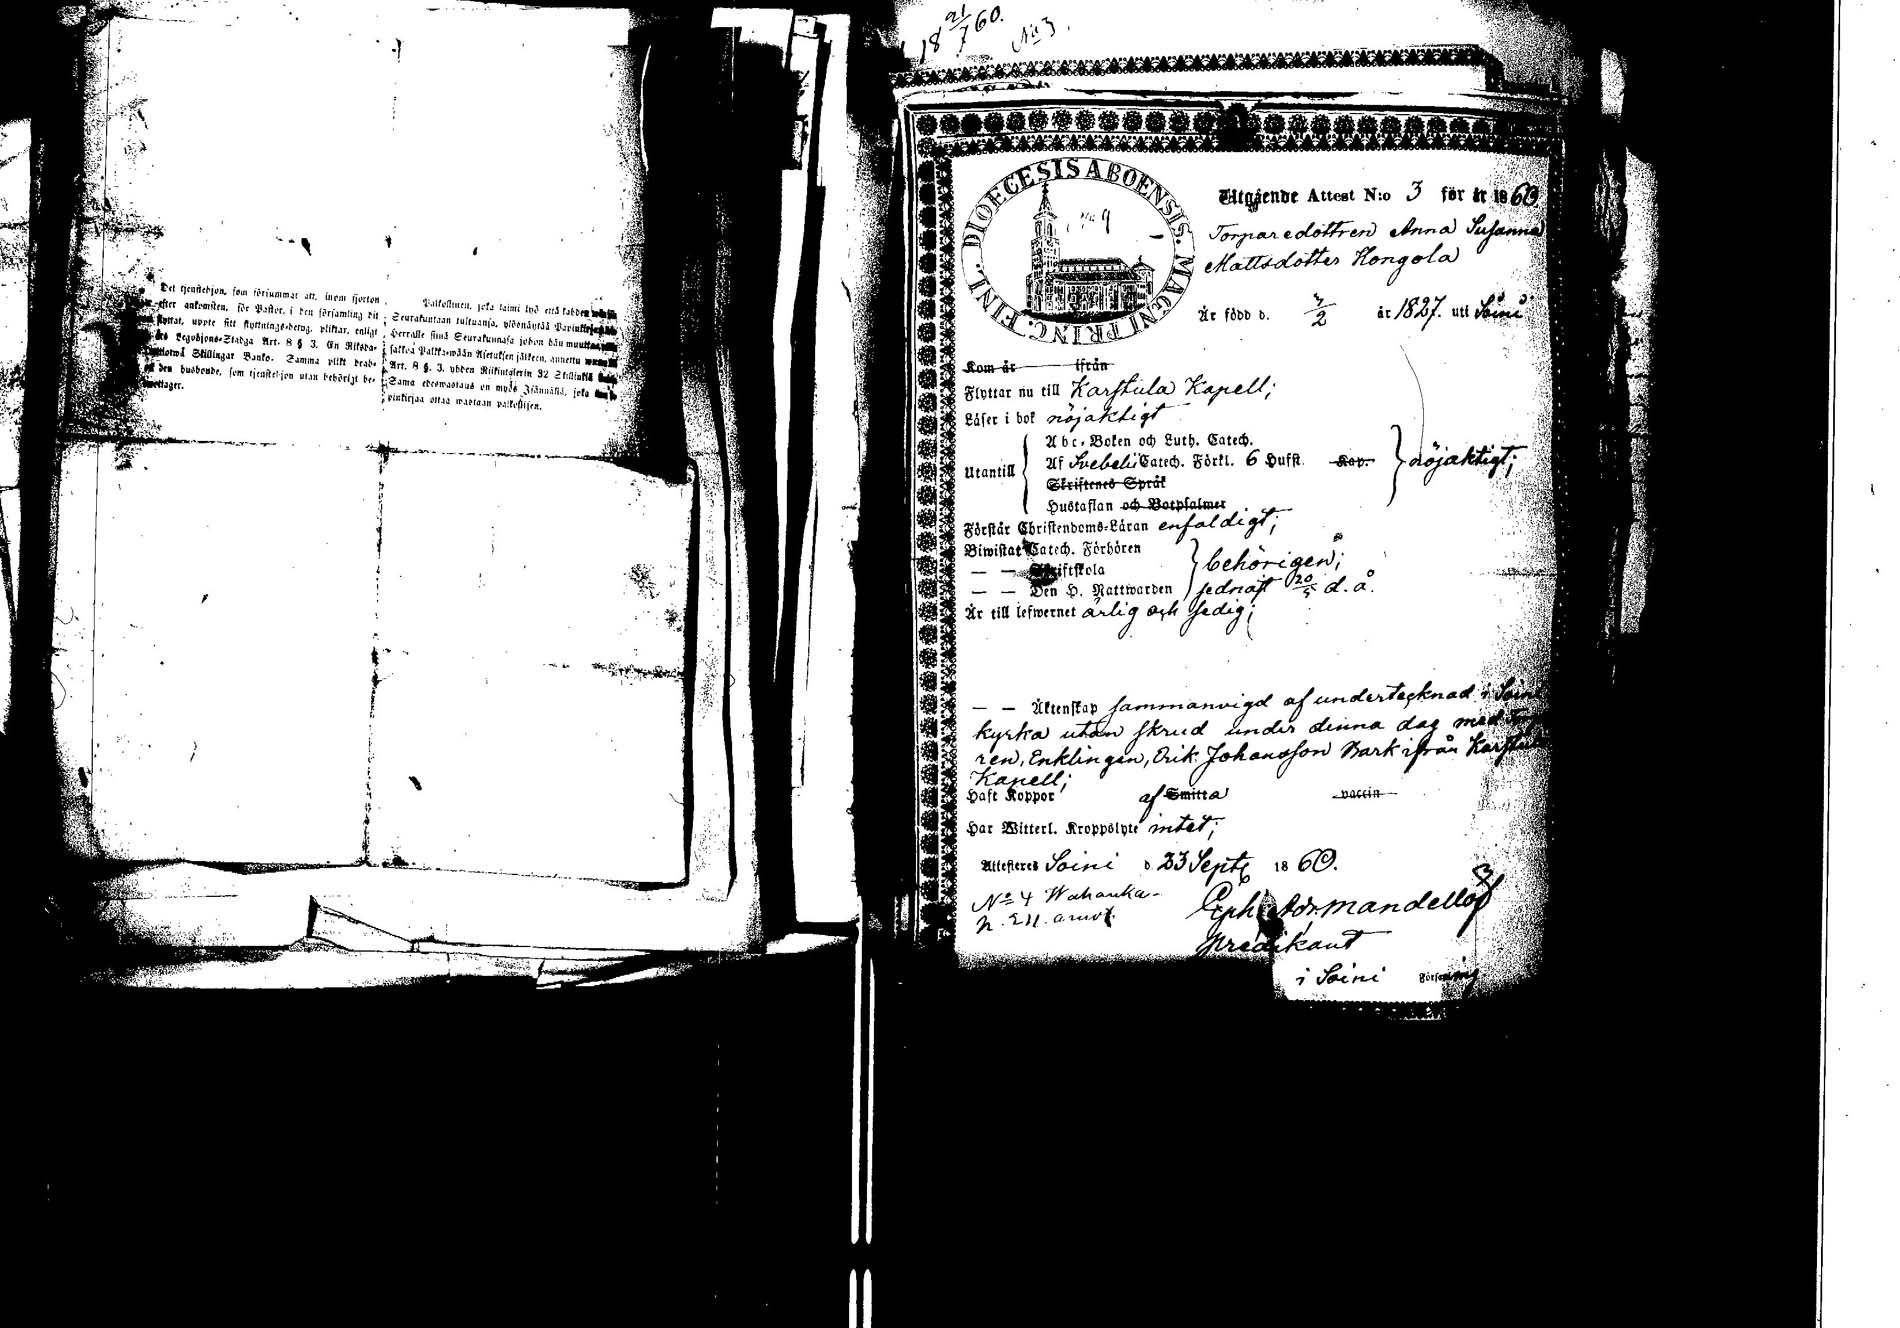 Det tjenstehjon, som försummar att, inom fjorton
efter ankomsten, för Pastor, i den församling dit
flyttat, uppte sitt flyttnings-betyg, pliktar, enligt
Legohjons-Stadga Art. 8 § 3. En Riksda-
Skillingar Banko. Samma plikt drab-
den husbonde, som tjenstehjon utan behörigt be-
emottager.
Palkollinen, joka laimi lyö että kahden
Seurakuntaan tultuansa, ylösnäyttää Papinkirjansa
Herralle siinä Seurakunnasa johon hän muuttaa,
sakkoa Palkka-wään Asetuksen jälkeen, annettu
Art. 8 §. 3. yhden Riikintalerin 32 Skillinkiä
Sama edeswastaus on myös Isännällä, joka
pinkirjaa ottaa wastaan palkollisen.
18 21/7 60.
No 3.
DIOECESIS ABOENSIS. MAGNI PRINC. FINL.
No 9
Utgående Attest N:o 3 för år 1860
Torparedottren Anna Susanna
Mattsdotter Hongola
Är född d. 3/2 år 1827. uti Soini
Kom år ifrån
Flyttar nu till Karstula Kapell;
Läser i bok nöjaktigt
Utantill
Abc-Boken och Luth. Catech.
Af Svebelii Catech. Förkl. 6 Hufst. Kap.
Skriftenes Språk
Hustaflan och Botpsalmer
nöjaktigt;
Förstår Christendoms-Läran enfaldigt;
Biwistat Catech. Förhören
— — Skriftskola
behörigen;
— — Den H. Nattwarden sednast 20/5 d. å.
Är till lefwernet ärlig och sedig;
— — Äktenskap sammanvigd af undertecknad i Soini
kyrka utan skrud under denna dag med
ren, Enklingen, Erik Johansson Bark ifrån Karstula
Kapell;
Haft Koppor af Smitta vaccin
Har Witterl. Kroppslyte intet;
Attesteras Soini d. 23 Sept 1860.
No 4 Wahanka
Predikant
i Soini Församling